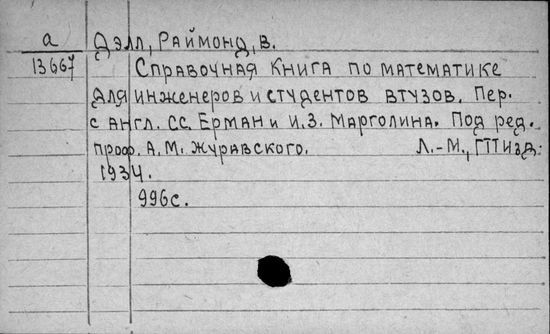 а Дэлл, Раймонд, В.
13667 Справочная книга по математике
для инженеров и студентов втузов. Пер.
с англ. СС. Ерман и И.З. Марголина. Под ред.
проф. А.М. Журавского. Л.-М., ГТТИзд.
1934.
996с.